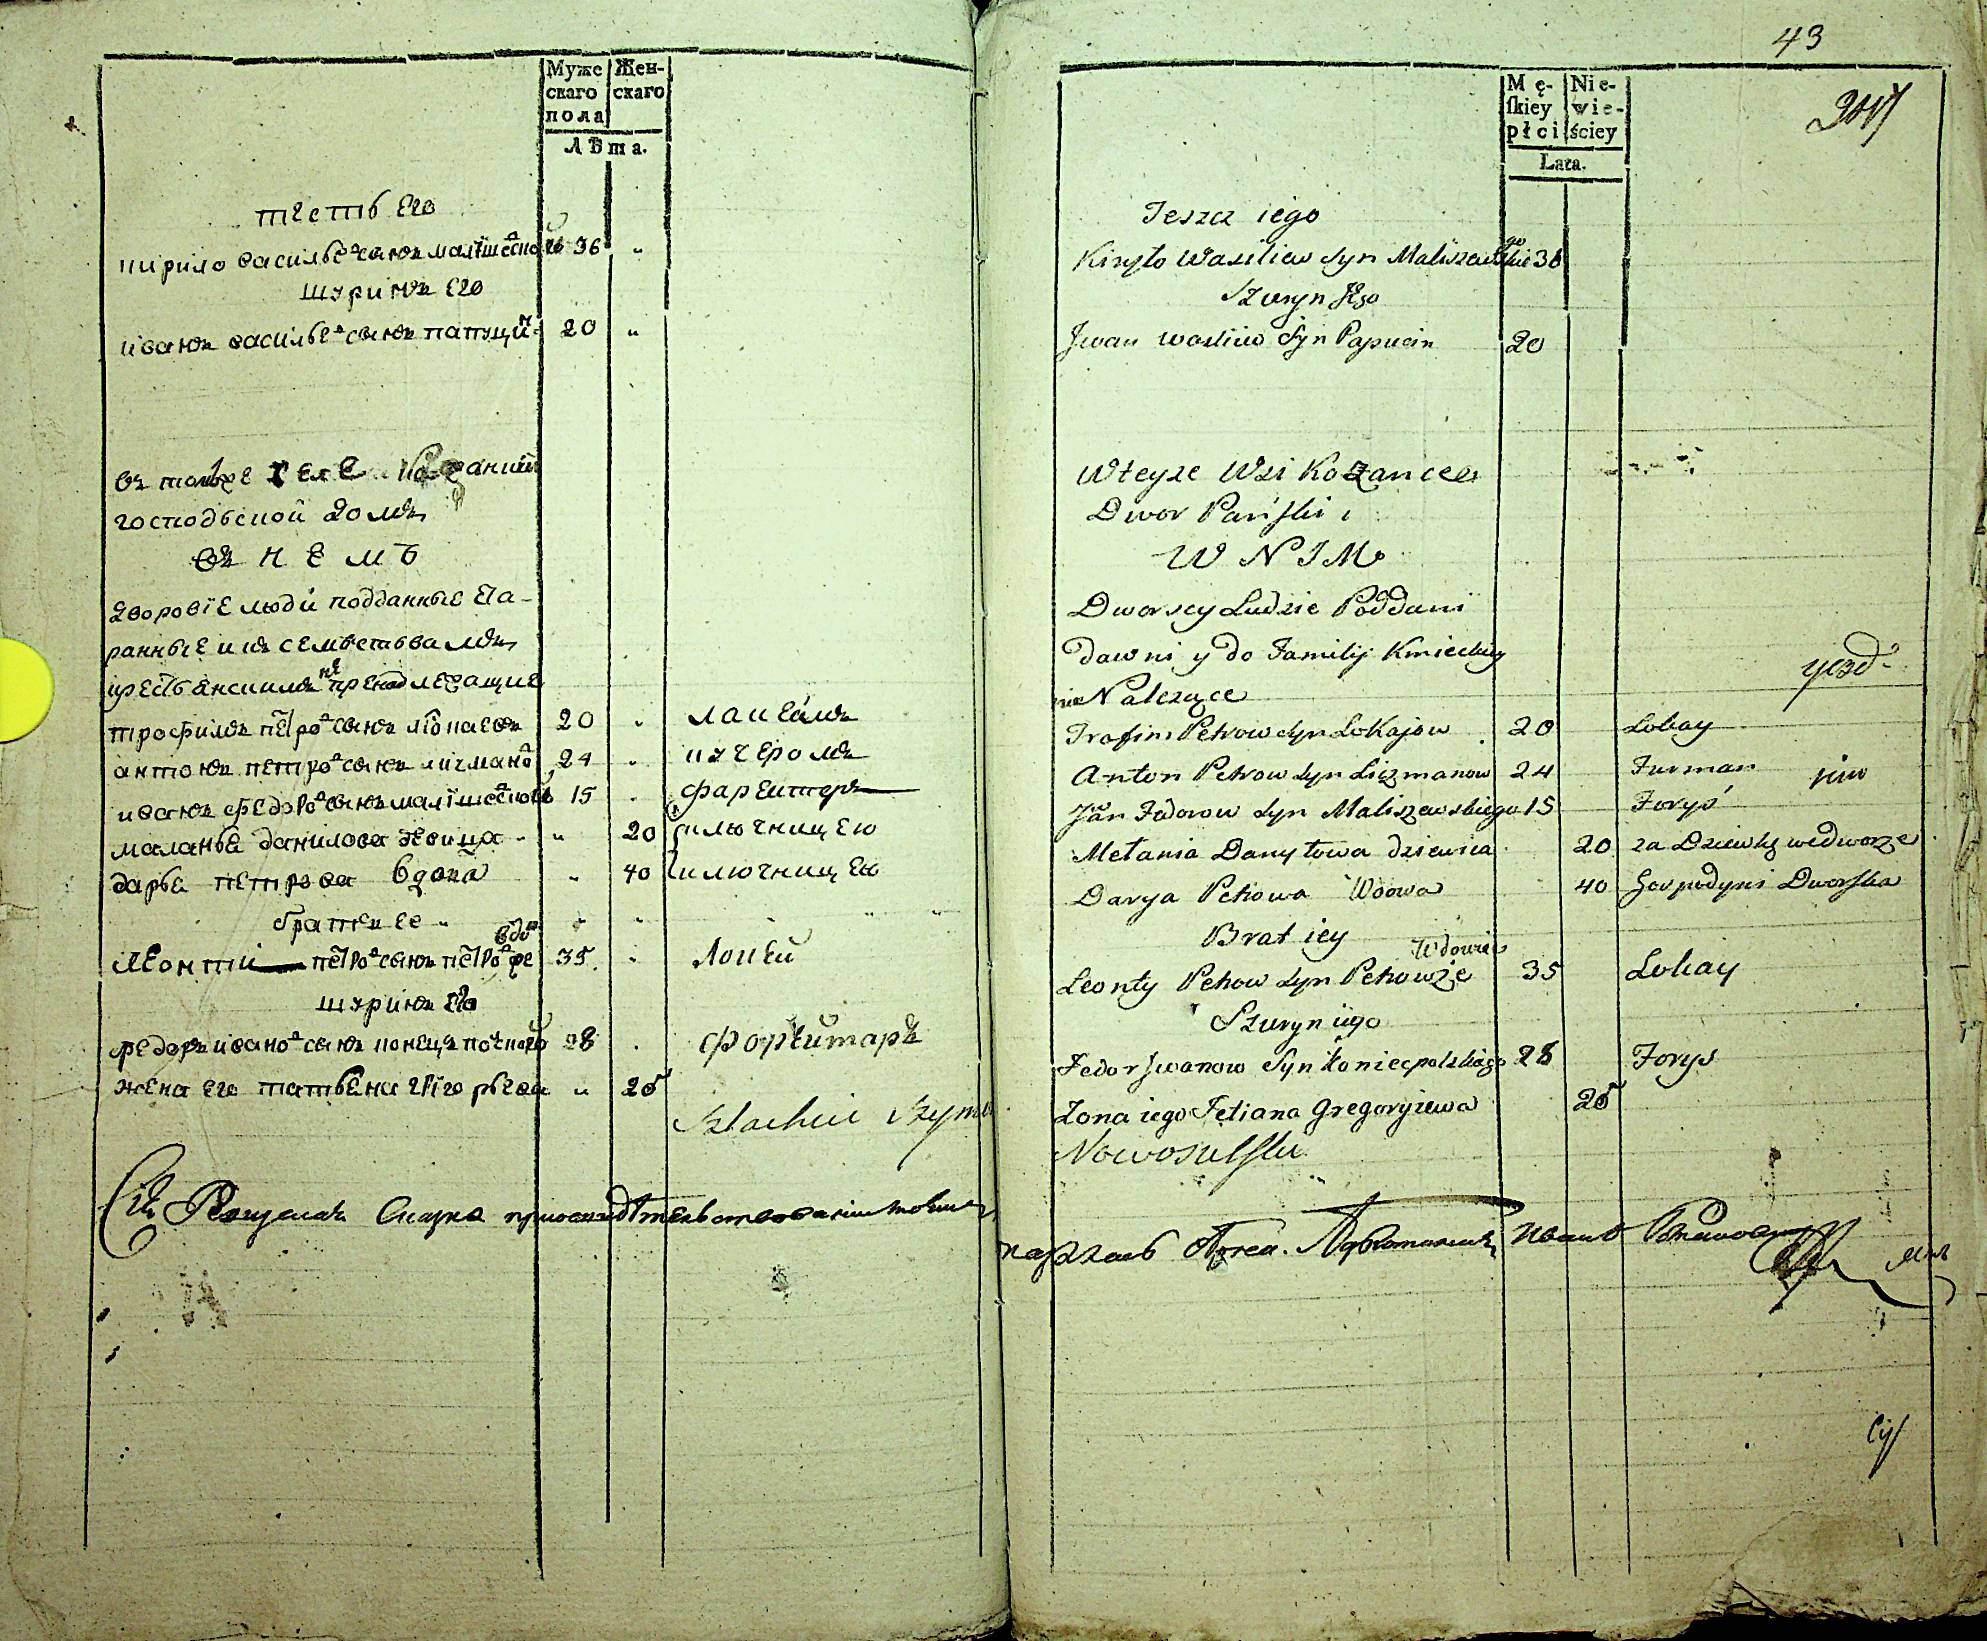 Муже
скаго
пола
Жен-
скаго
Лѣта.
тесть его
кирило васильевъ сынъ малишевской 36 „
шуринъ его
иванъ васильевъ сынъ папуци 20 „
въ томже селе
господской домъ
въ немъ
дворовіе люди подданные ста-
ранные и къ семействамъ
крестьянскимъ не пренадлежащие
трофимъ петровъ сынъ локаевъ 20 „ лакеамъ
антонъ петровъ сынъ личмано 24 „ кучеромъ
иванъ федоровъ сынъ малишевской 15 „ фареитеръ
маланья данилова девица „ 20 ключницею
дарья петрова вдова „ 40 ключницею
братъ ее „ „
вдов
леонтій петровъ сынъ петров же 35 „ локей
шуринъ его
федоръ ивановъ сынъ конецполской 28 „ форейтаръ
жена его татьяна григорьева „ 25
Szlachcic Szym
Сія Ревизская Сказка
43
Mę-
skiey
płci
Nie-
wie-
ściey
Lata.
Teszcz iego
Kiryło Wasiliew Syn Maliszewskiego 36
Szuryn Jego
Jwan Wasiliw Syn Papucin 20
Wteyże Wsi Kozance
Dwor Pański
W NIM
Dworscy Ludzie Poddani
dawni y do Familij Kmieckiey
nie Należące
Trofim Petrow Syn Lokajow 20 Lokay
Anton Petrow Syn Liczmanow 24 Furman
Jan Fedorow Syn Maliszewskiego 15 Foryś
Mełania Danyłowa dziewica 20 za Dziewkę wedworze
Darya Petrowa Wdowa 40 Gospodyni Dworska
Brat iey
Wdowiec
Leonty Petrow Syn Petrowże 35 Lokay
Szuryn iego
Fedor Jwanow Syn Koniecpolskiego 28 Forys
Żona iego Tetiana Gregoryiewa 25
Nowosielski